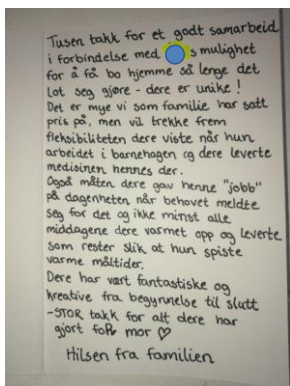 Tusen takk for et godt samarbeid
i forbindelse med s mulighet
for å få bo hjemme så lenge det
lot seg gjøre - dere er unike!
Det er mye vi som familie har satt
pris på, men vil trekke frem
fleksibiliteten dere viste når hun
arbeidet i barnehagen og dere leverte
medisinen hennes der.
Også måten dere gav henne "jobb"
på dagenheten når behovet meldte
seg for det og ikke minst alle
middagene dere varmet opp og leverte
som rester slik at hun spiste
varme måltider.
Dere har vært fantastiske og
kreative fra begynnelse til slutt
-STOR takk for alt dere har
gjort for mor ♡
Hilsen fra familien